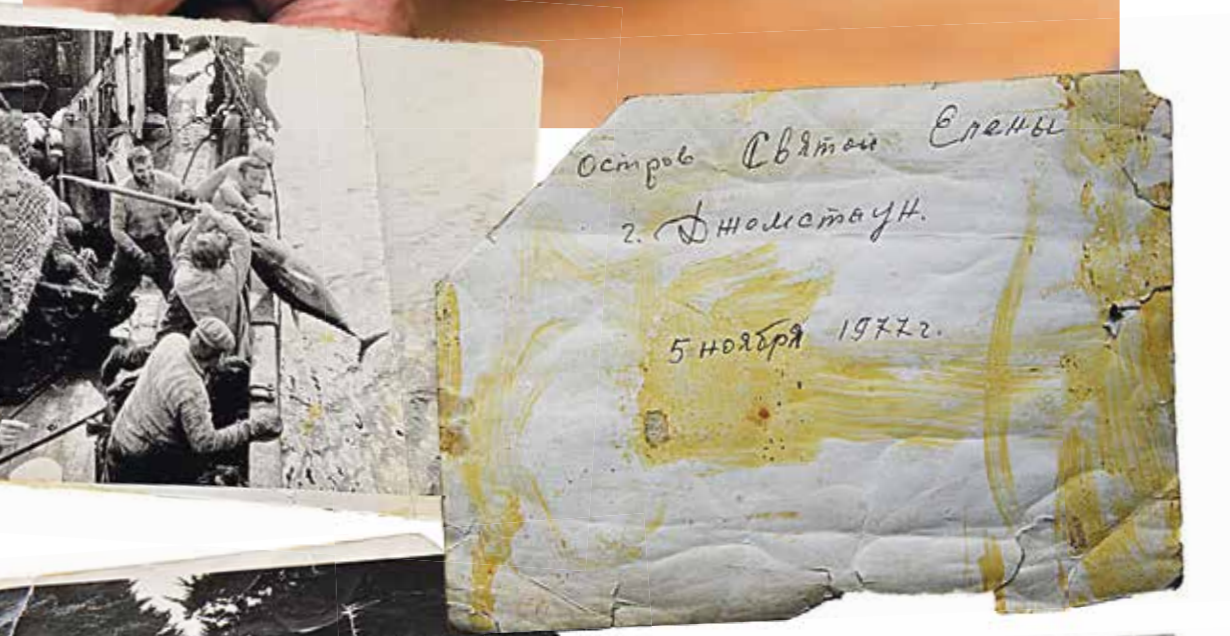 Остров Святой Елены
г. Джомстаун.
5 ноября 1977г.